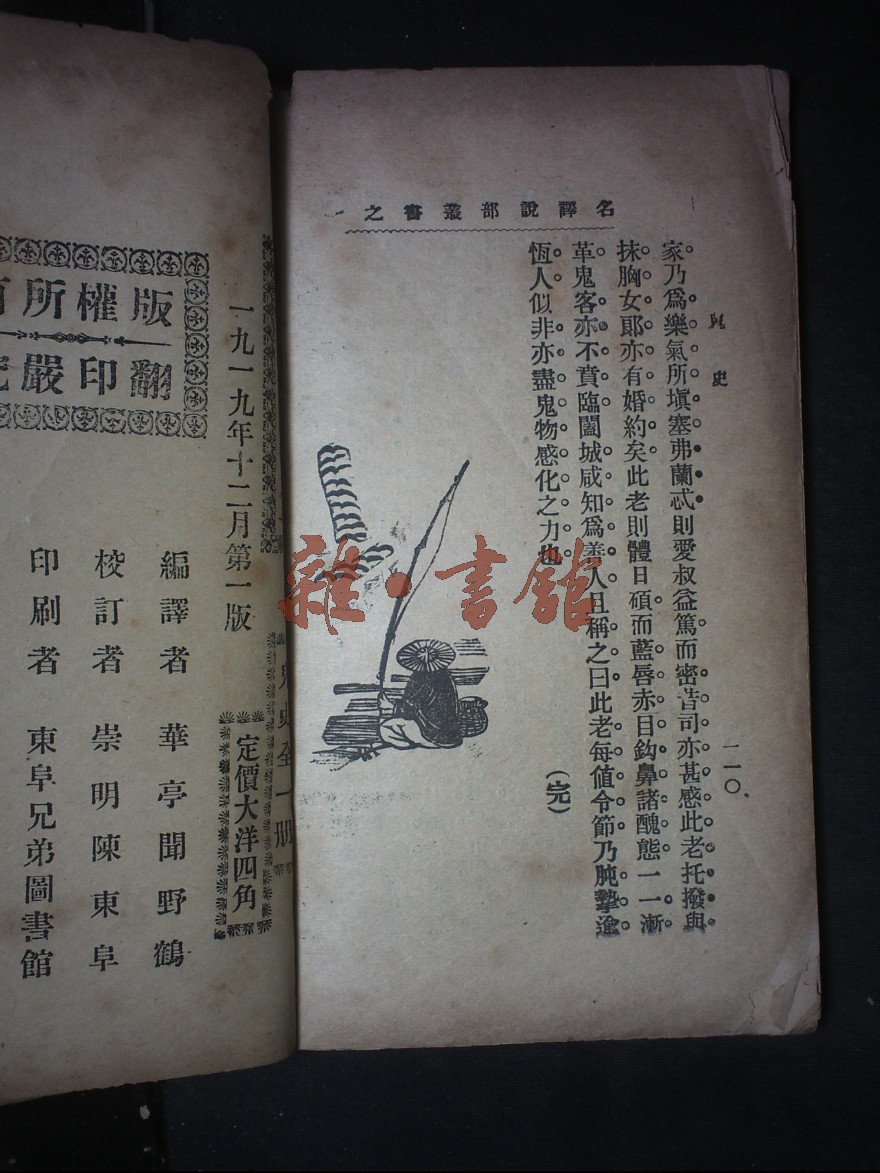 名譯說部叢書之一
鬼史
一一〇
家乃爲樂氣所塡塞弗蘭忒則愛叔益篤而密昔司亦甚感此老托撥與
抹胸女郞亦有婚約矣此老則體日碩而藍唇赤目鈎鼻諸醜態一一漸
革鬼客亦不賁臨闔城咸知爲善人且稱之曰此老每値令節乃肫摯逾
恆人似非亦盡鬼物感化之力也
(完)
雜·書館
鬼史全一册
定價大洋四角
一九一九年十二月第一版
版權所有
翻印嚴究
編譯者 華亭聞野鶴
校訂者 崇明陳東阜
印刷者 東阜兄弟圖書館